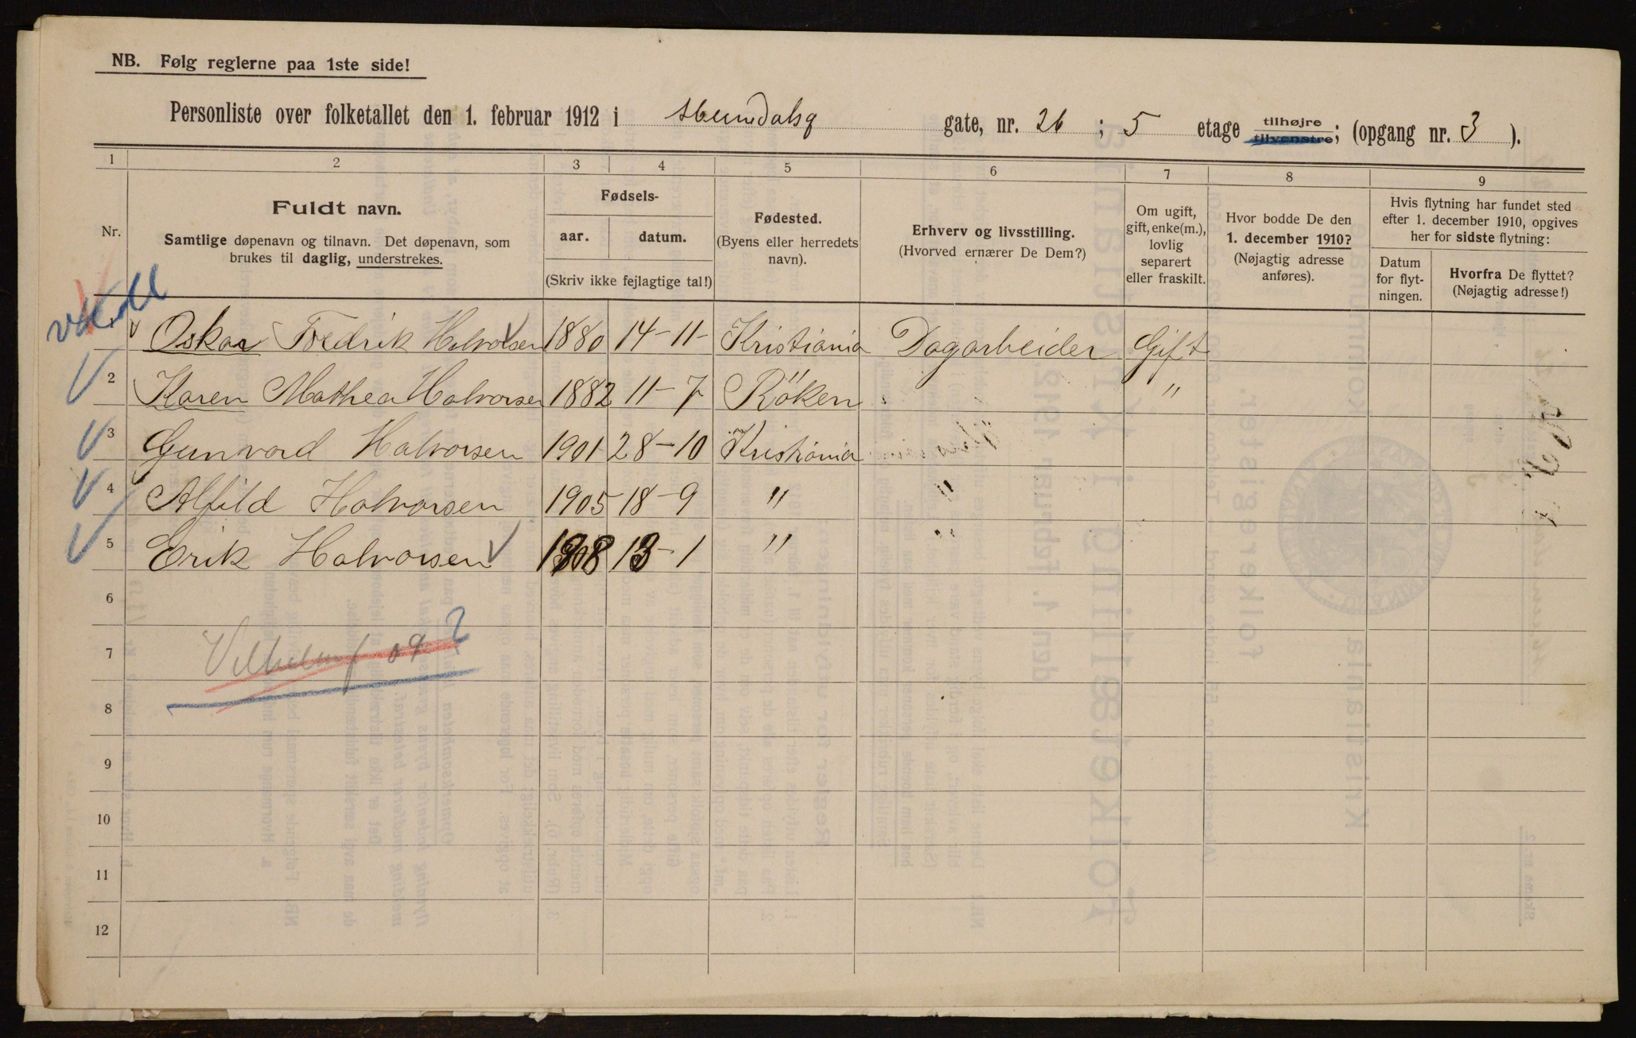 NB. Følg reglerne paa 1ste side!
Personliste over folketallet den 1. februar 1912 i gate, nr. 26 ; 5 etage tilhøjre tilvenstre; (opgang nr. 3 ).
1 2 3 4 5 6 7 8 9
Nr.
Fuldt navn.
Samtlige døpenavn og tilnavn. Det døpenavn, som
brukes til daglig, understrekes.
Fødsels-
aar. datum.
(Skriv ikke feilagtige tal!)
Fødested.
(Byens eller herredets
navn).
Erhverv og livsstilling.
(Hvorved ernærer De Dem?)
Om ugift,
gift, enke(m.),
lovlig
separert
eller fraskilt.
Hvor bodde De den
1. december 1910?
(Nøjagtig adresse
anføres).
Hvis flytning har fundet sted
efter 1. december 1910, opgives
her for sidste flytning:
Datum
for flyt-
ningen.
Hvorfra De flyttet?
(Nøjagtig adresse!)
Oskar Fredrik Halvorsen 1880 14-11- Kristiania Dagarbeider Gift
2 Karen Mathea Halvorsen 1882 11-7 Röken "
3 Gunvord Halvorsen 1901 28-10 Kristiania
4 Alfild Halvorsen 1905 18-9 " "
5 Erik Halvorsen 1908 13-1 " "
6
7
8
9
10
11
12